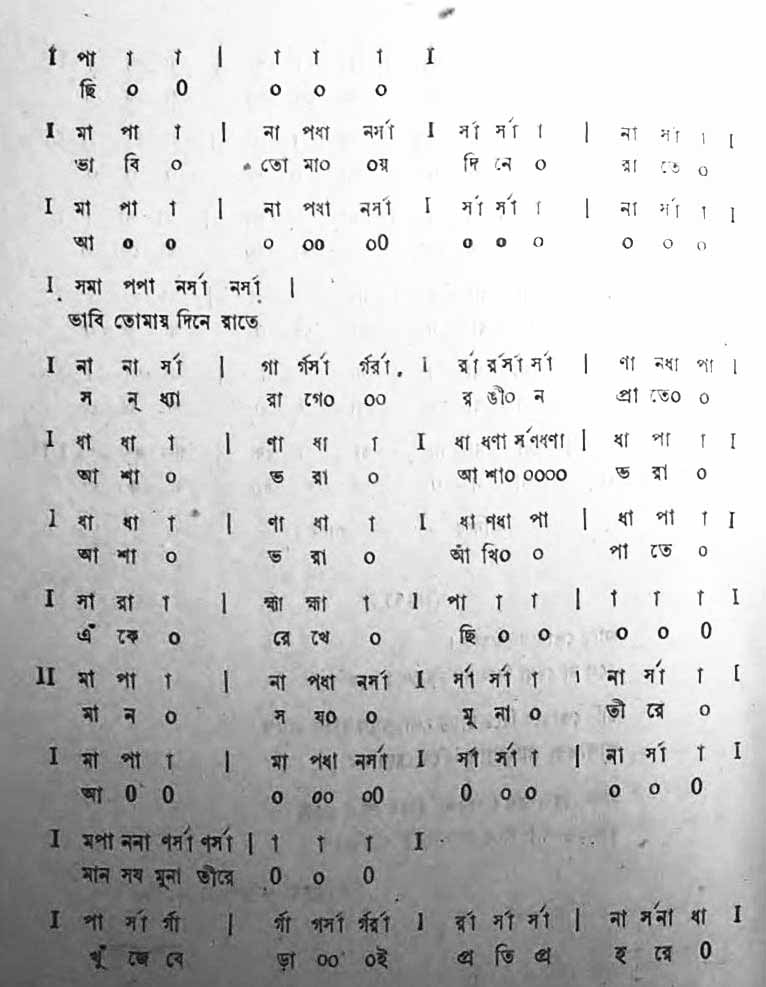 I পা া া | া া া I
ছি ০ ০ ০ ০ ০
I মা পা া | না পধা নর্সা I র্সা র্সা া | না র্সা া I
ভা বি ০ তো মা০ ০য় দি নে ০ রা তে ০
I মা পা া | না পধা নর্সা I র্সা র্সা া | না র্সা া I
আ ০ ০ ০ ০০ ০০ ০ ০ ০ ০ ০ ০
I সমা পপা নর্সা নর্সা |
ভাবি তোমায় দিনে রাতে
I না না র্সা | গা র্গর্সা র্গর্রা, I র্রা র্রর্সা র্সা | ণা নধা পা I
স ন্ ধ্যা রা গে০ ০০ র ঙী০ ন প্রা তে০ ০
I ধা ধা া | ণা ধা া I ধা ধণা র্সণধণা | ধা পা া I
আ শা ০ ভ রা ০ আ শা০ ০০০০ ভ রা ০
I ধা ধা া | ণা ধা া I ধা ণধা পা | ধা পা া I
আ শা ০ ভ রা ০ আঁ খি০ ০ পা তে ০
I সা রা া | হ্মা হ্মা া I পা া া | া া া I
এঁ কে ০ রে খে ০ ছি ০ ০ ০ ০ ০
II মা পা া | না পধা নর্সা I র্সা র্সা া | না র্সা া I
মা ন ০ স য০ ০ মু না ০ তী রে ০
I মা পা া | মা পধা নর্সা I র্সা র্সা া | না র্সা া I
আ ০ ০ ০ ০০ ০০ ০ ০ ০ ০ ০ ০
I মপা ননা ণর্সা ণর্সা | া া া I
মান সয মুনা তীরে ০ ০ ০
I পা র্সা র্গা | র্গা গর্সা র্গর্রা I র্রা র্সা র্সা | না র্সনা ধা I
খুঁ জে বে ড়া ০০ ০ই প্র তি প্র হ রে ০